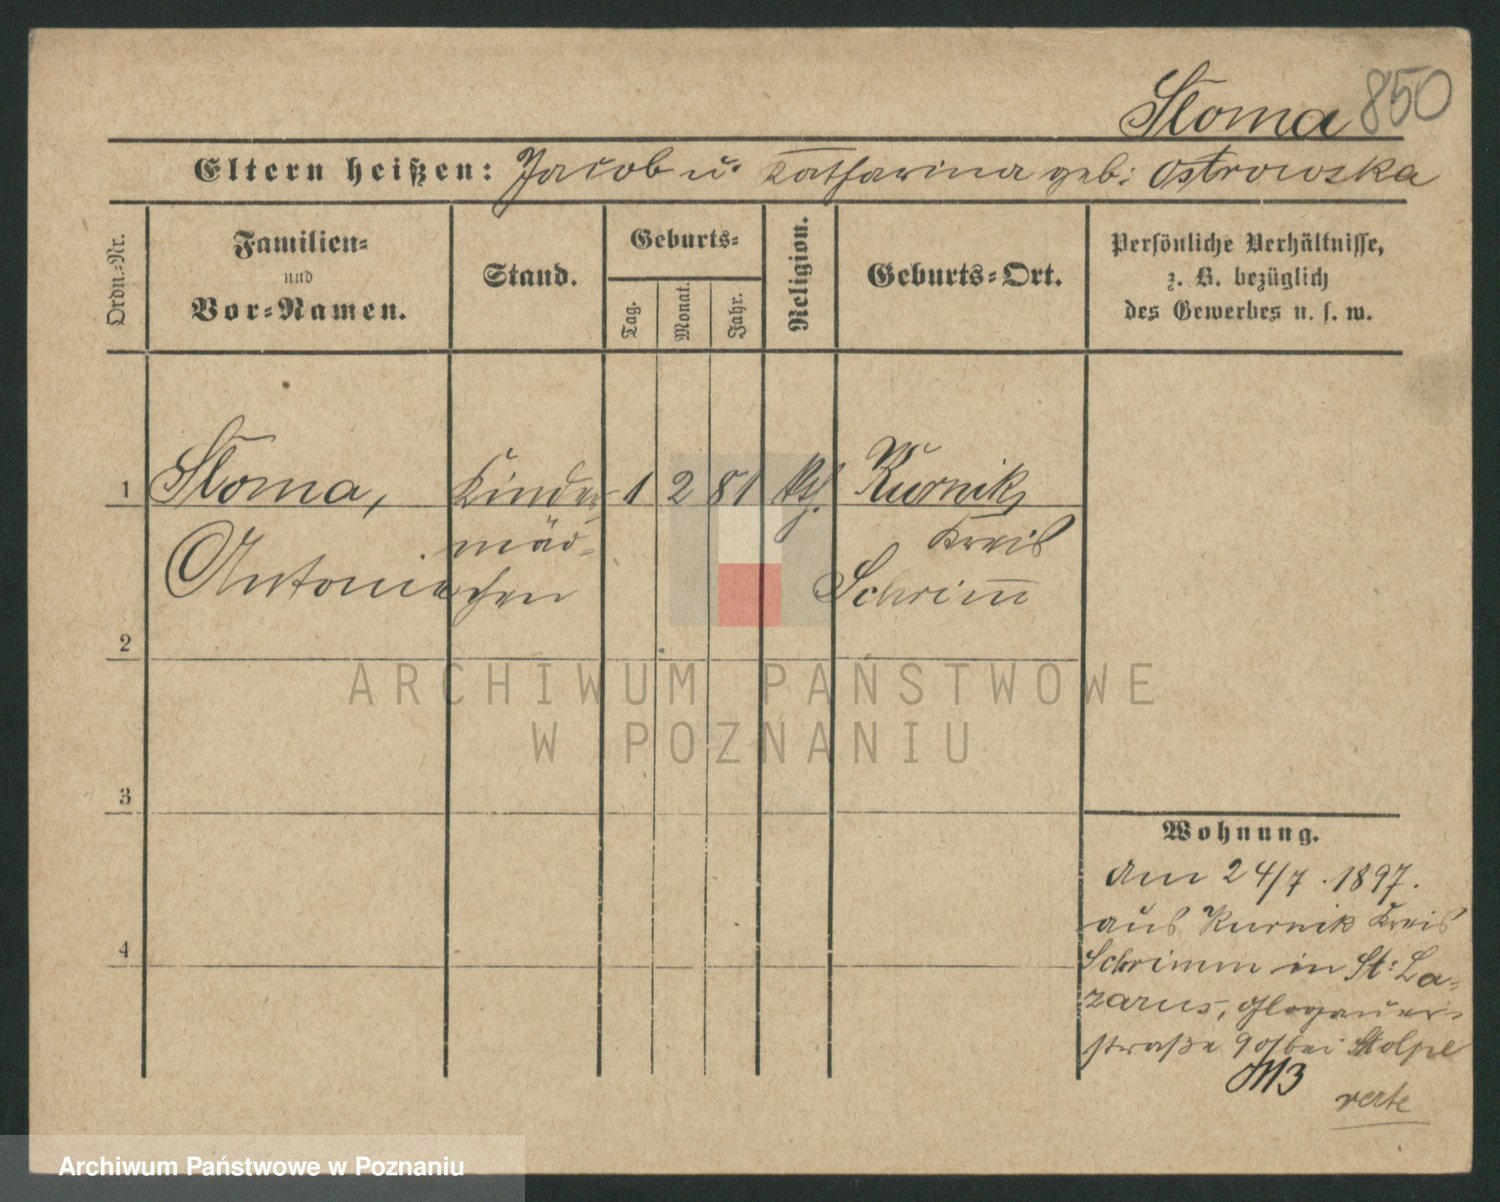 Słoma 850
Eltern heißen: Jacob u. Katharina geb: Ostrowska
Ordn.-Nr.
Familien-
und
Vor-Namen.
Stand.
Geburts-
Tag.
Monat.
Jahr.
Religion.
Geburts-Ort.
Persönliche Verhältnisse,
z. B. bezüglich
des Gewerbes u. s. w.
1 Słoma, Kinder- 1 2 81 Kurnik,
Antonie mäd- Kreis
chen Schrim̅
2
ARCHIWUM PAŃSTWOWE
W POZNANIU
3
Wohnung.
Am 24/7. 1897.
aus Kurnik Kreis
4
Schrimm in St: La-
zarus, Glogauer-
straße 90/bei Stolpe
verte
Archiwum Państwowe w Poznaniu